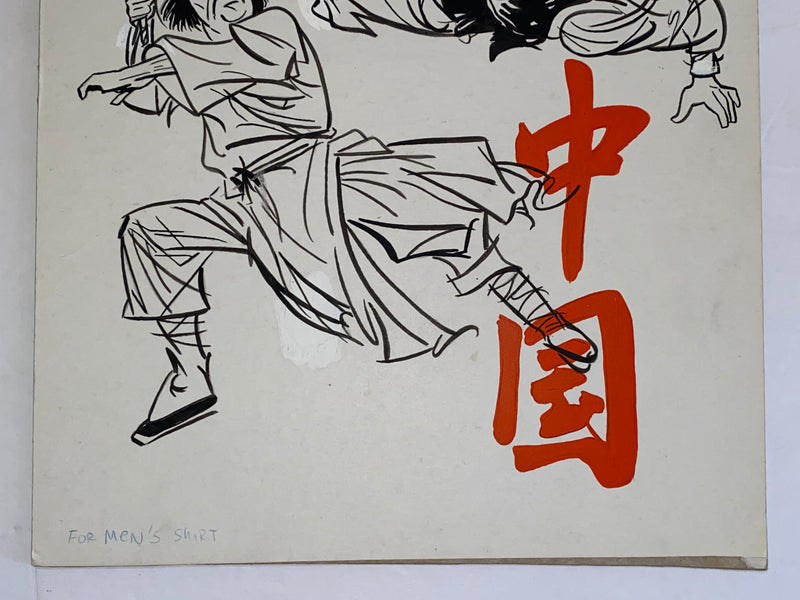 中
国
FOR MEN'S SHIRT